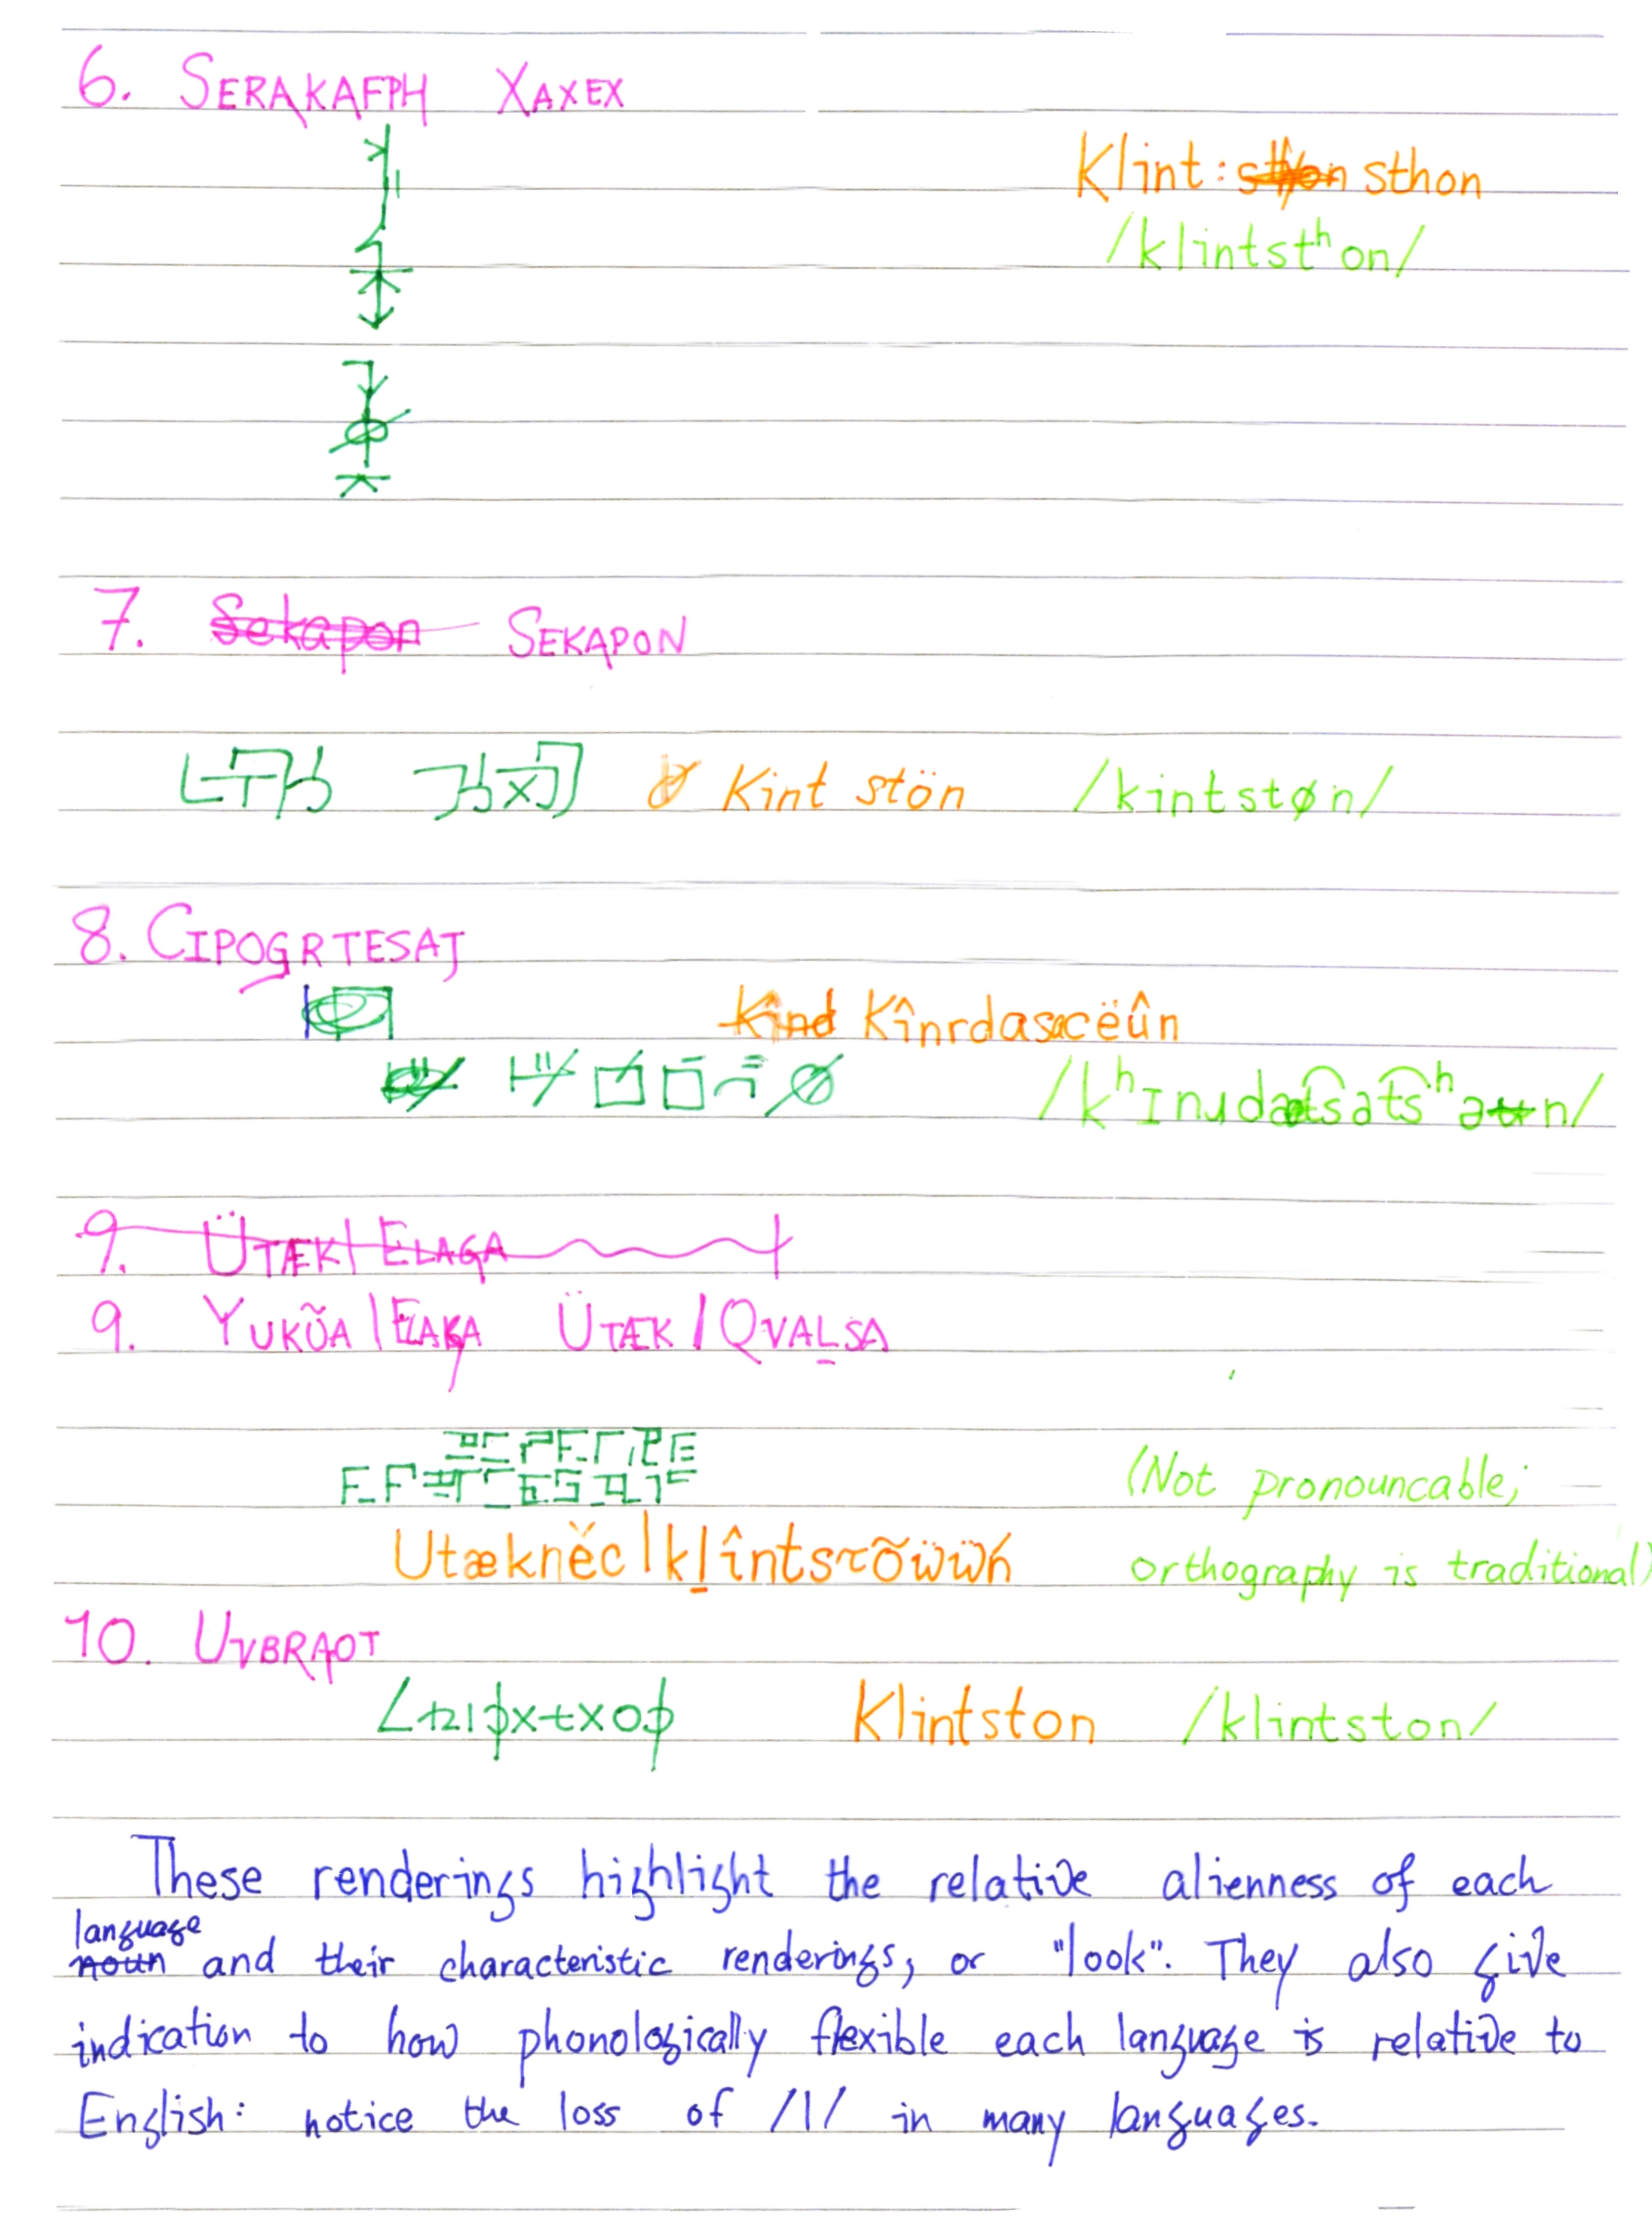 6. SERAKAFPH XAXEX
Klint: sthon
/klintstʰon/
7. Sekapon SEKAPON
Kint stön /kintstøn/
8. CIPOGRTESAT
Kînd Kînrdasacëûn
9. ÜTÆK|ELAGA
9. YUKÕA|ELAKA ÜTÆK|QVALSA
(Not pronouncable;
Utæknĕc|kḻîntsτõẅẅń orthography is traditional)
10. UVBRAOT
Klintston /klintston/
These renderings highlight the relative alienness of each
language
noun and their characteristic renderings, or "look". They also give
indication to how phonologically flexible each language is relative to
English: notice the loss of /l/ in many languages.